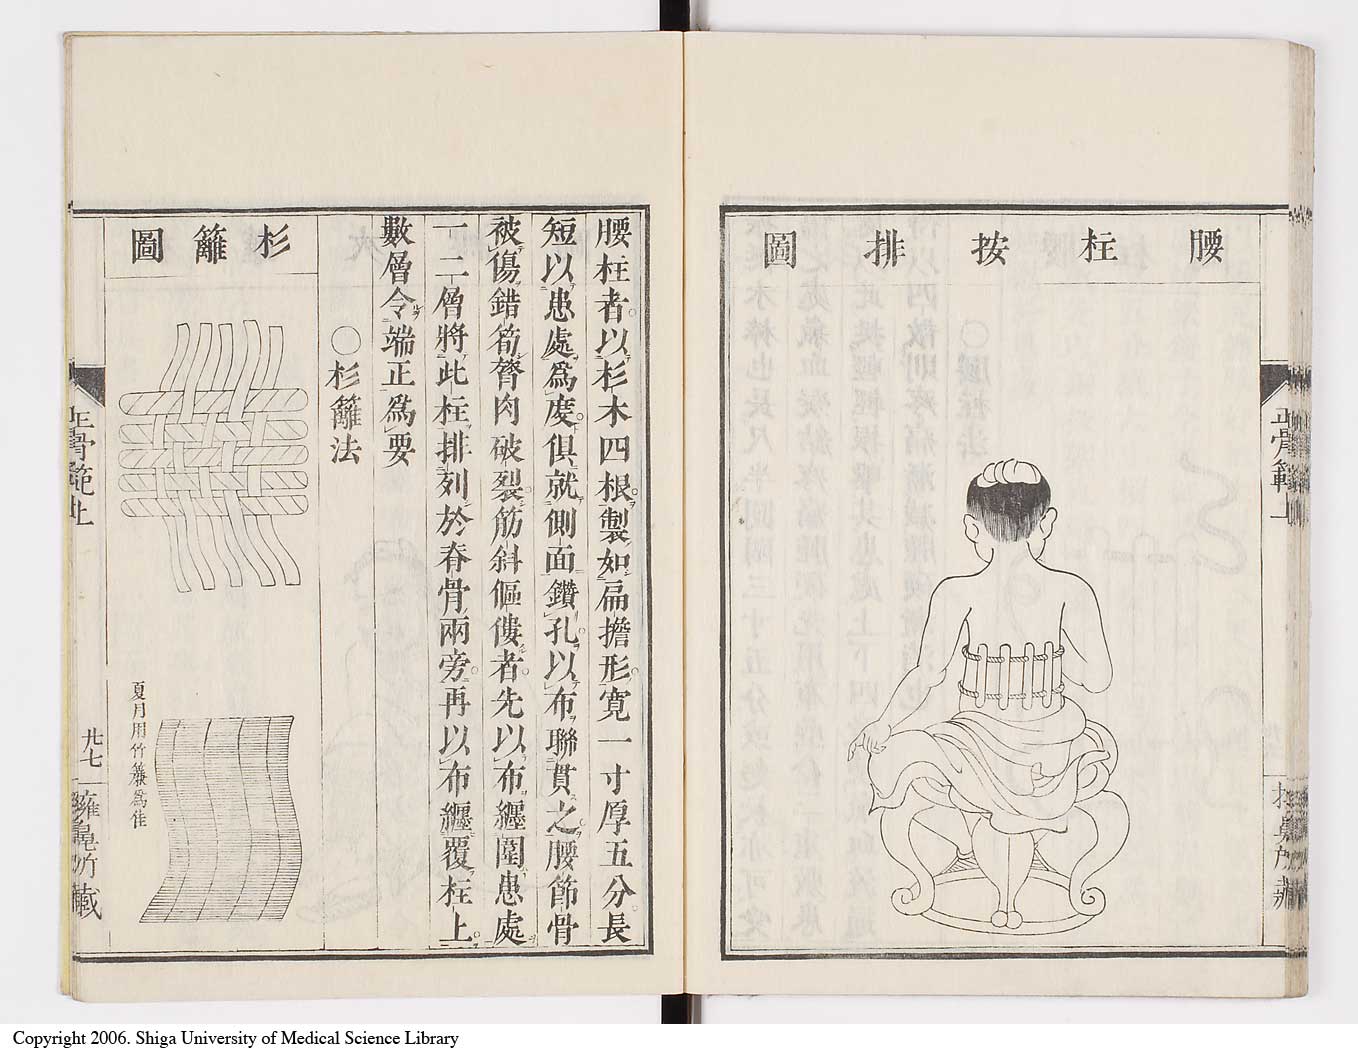 腰柱按排圖
正骨範上
腰柱者以杉木四根製如扁擔形寬一寸厚五分長
短以患處爲度俱就側面鑽孔以布聯貫之腰節骨
被傷錯筍膂肉破裂筋斜傴僂者先以布纏圍患處
一二層將此柱排列於脊骨兩旁再以布纏覆柱上
數層令端正爲要
〇杉籬法
杉籬圖
夏月用竹簾爲佳
正骨範上
廿七
藏
Copyright 2006. Shiga University of Medical Science Library